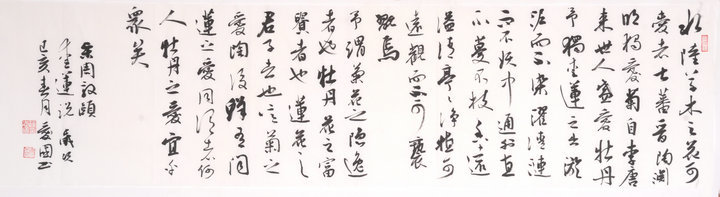 水陸草木之花可
愛者甚蕃晉陶淵
明獨愛菊自李唐
来世人盛愛牡丹
予獨愛蓮之出淤
泥而不染濯清漣
而不妖中通外直
不蔓不枝香遠
溢清亭亭淨植可
遠觀而不可褻
翫焉
予謂菊花之隱逸
者也牡丹花之富
貴者也蓮花之
君子者也噫菊之
愛陶後鮮有聞
蓮之愛同予者何
人牡丹之愛宜乎
眾矣
宋周敦頤
愛蓮說 歲次
己亥春月愛國书